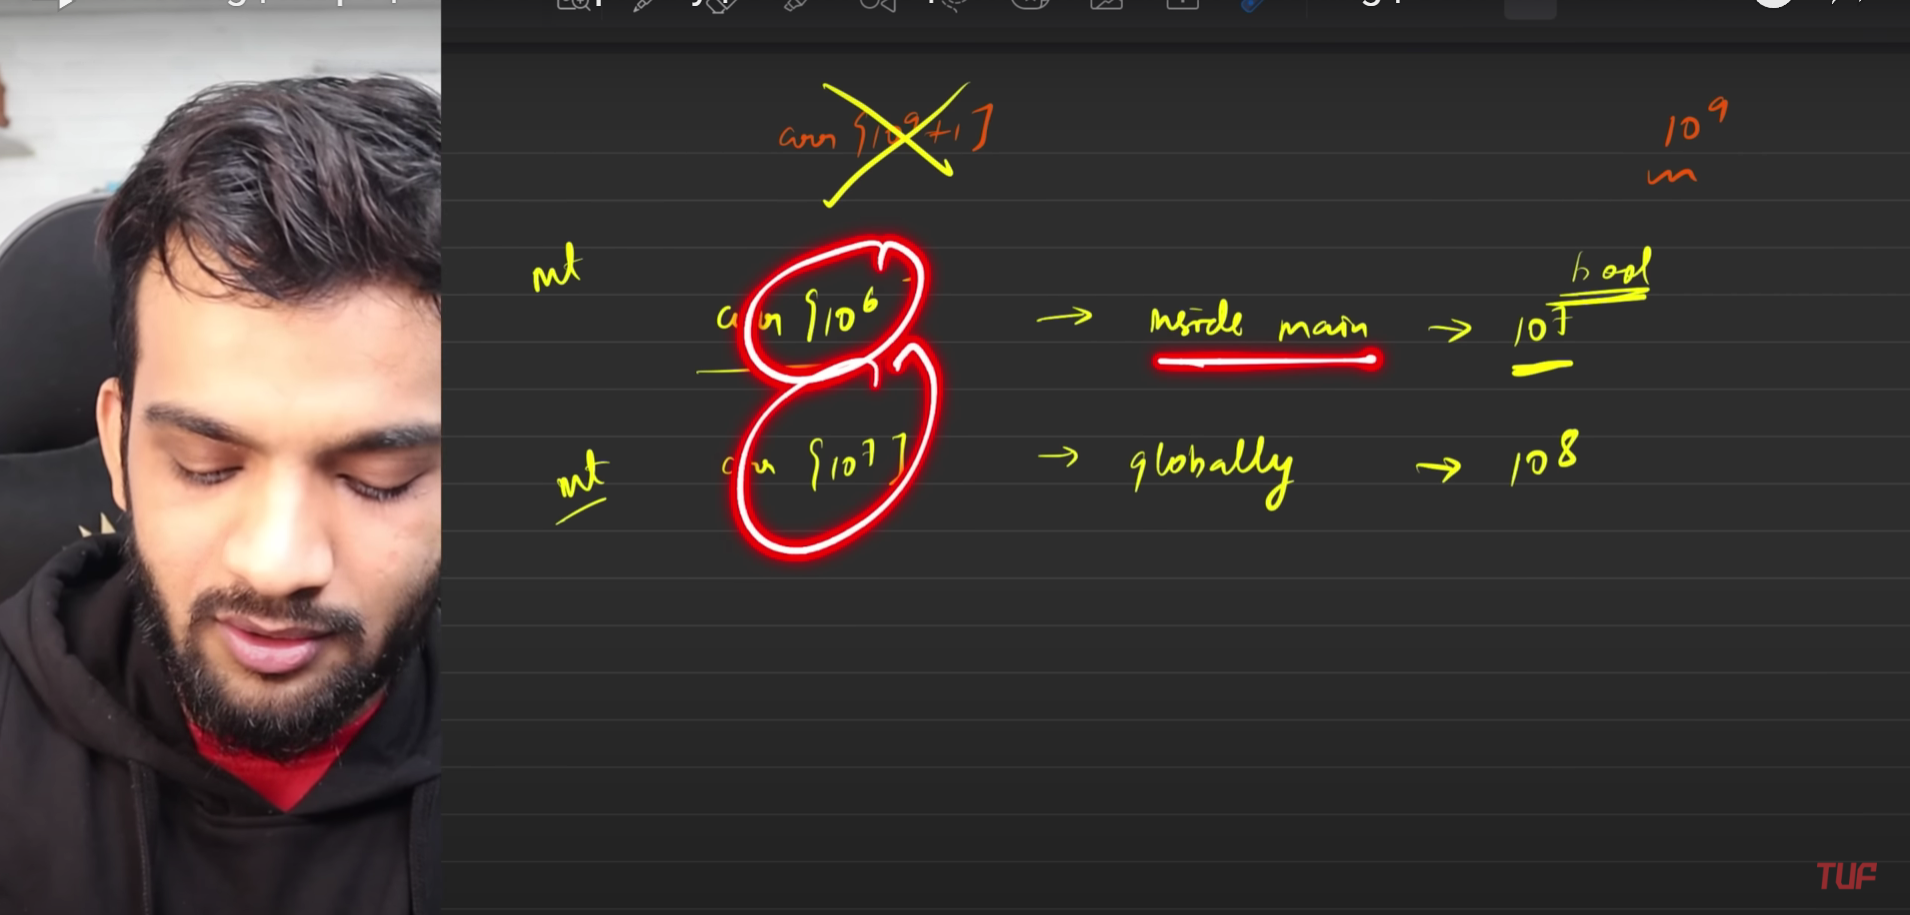 arr [10⁹+1]
10⁹
int
bool
arr [10⁶ → inside main → 10⁷
int arr [10⁷] → globally → 10⁸
TUF